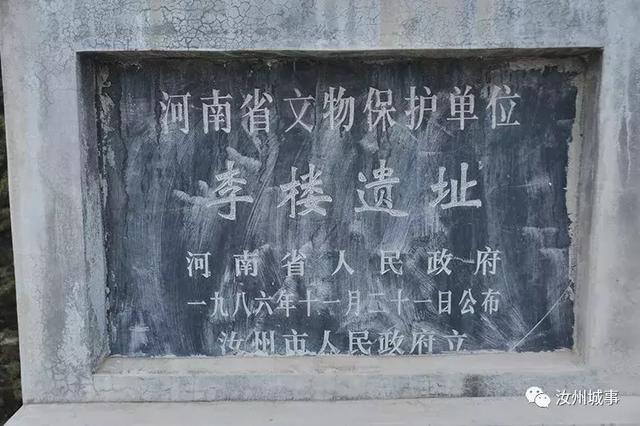 河南省文物保护单位
李楼遗址
河南省人民政府
一九八六年十一月二十一日公布
汝州市人民政府立
汝州城事